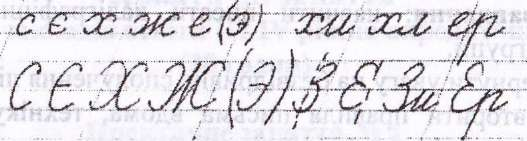 с є х ж е (э) хи хл ер
С Є Х Ж (Э) З Е Зи Ер